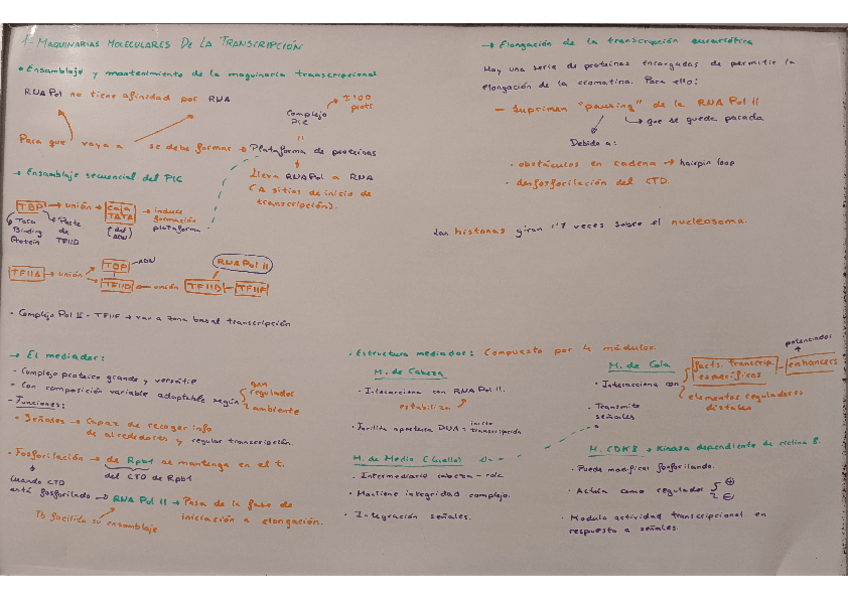 1- MAQUINARIAS MOLECULARES DE LA TRANSCRIPCIÓN
• Ensamblaje y mantenimiento de la maquinaria transcripcional
RNA Pol no tiene afinidad por RNA
Complejo PIC
prots.
Para que vaya a se debe formar → Plataforma de proteínas
Lleva RNA Pol a RNA
(A sitios de inicio de
transcripción).
→ Ensamblaje secuencial del PIC
TBP → unión → Caja TATA → induce formación plataforma
Binding Protein
Parte de TFIID
(del ADN)
TFIIA → unión
TBP → ADN
TFIID → unión TFIID - TFIIF
RNA Pol II
• Complejo Pol II - TFIIF → van a zona basal transcripción
→ El mediador:
- Complejo proteico grande y versátil
- Con composición variable adaptable según
gen regulador
ambiente
- Funciones:
• Señales → Capaz de recoger info
de alrededores y regular transcripción.
• Fosforilación → de Rpb1 se mantenga en el t.
del CTD de Rpb1
Cuando CTD
está fosforilado → RNA Pol II → Pasa de la fase de
iniciación a elongación.
Tb facilita su ensamblaje
→ Elongación de la transcripción eucariótica
Hay una serie de proteínas encargadas de permitir la
elongación de la cromatina. Para ello:
- Suprimen "pausing" de la RNA Pol II
→ que se quede parada
Debido a:
• obstáculos en cadena → hairpin loop
• desfosforilación del CTD.
Las histonas giran 1'7 veces sobre el nucleosoma.
• Estructura mediador: Compuesto por 4 módulos.
M. de Cabeza
• Interacciona con RNA Pol II.
estabiliza
• Facilita apertura DNA
M. de Medio (Cuello)
• Intermediario cabeza - cola
• Mantiene integridad complejo.
• Integración señales.
M. de Cola
• Interacciona con
facts. transcrip. específicos - enhancers
potenciador
elementos reguladores distales
• Transmite
señales
M. CDK8 → Kinasa dependiente de ciclina 8.
• Puede modificar fosforilando.
• Actúa como regulador + -
• Modula actividad transcripcional en
respuesta a señales.